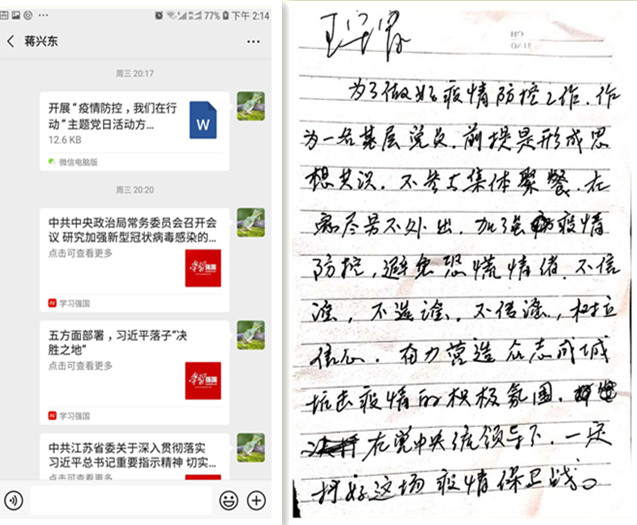 77% 下午 2:14
蒋兴东
周三 20:17
开展“疫情防控，我们在行
动”主题党日活动方...
12.6 KB
W
微信电脑版
周三 20:20
中共中央政治局常务委员会召开会
议 研究加强新型冠状病毒感染的...
点击可查看更多
学习强国
学习强国
五方面部署，习近平落子“决
胜之地”
点击可查看更多
学习强国
学习强国
中共江苏省委关于深入贯彻落实
习近平总书记重要指示精神 切实...
点击可查看更多
NO
DATE
为了做好疫情防控工作，作
为一名基层党员，前提是形成思
想共识。不参与集体聚餐，在
家尽量不外出，加强疫情
防控，避免恐慌情绪，不信
谣，不造谣，不传谣，树立
信心。奋力营造众志成城
抗击疫情的积极氛围。
在党中央统领导下，一定
打好这场疫情保卫战。